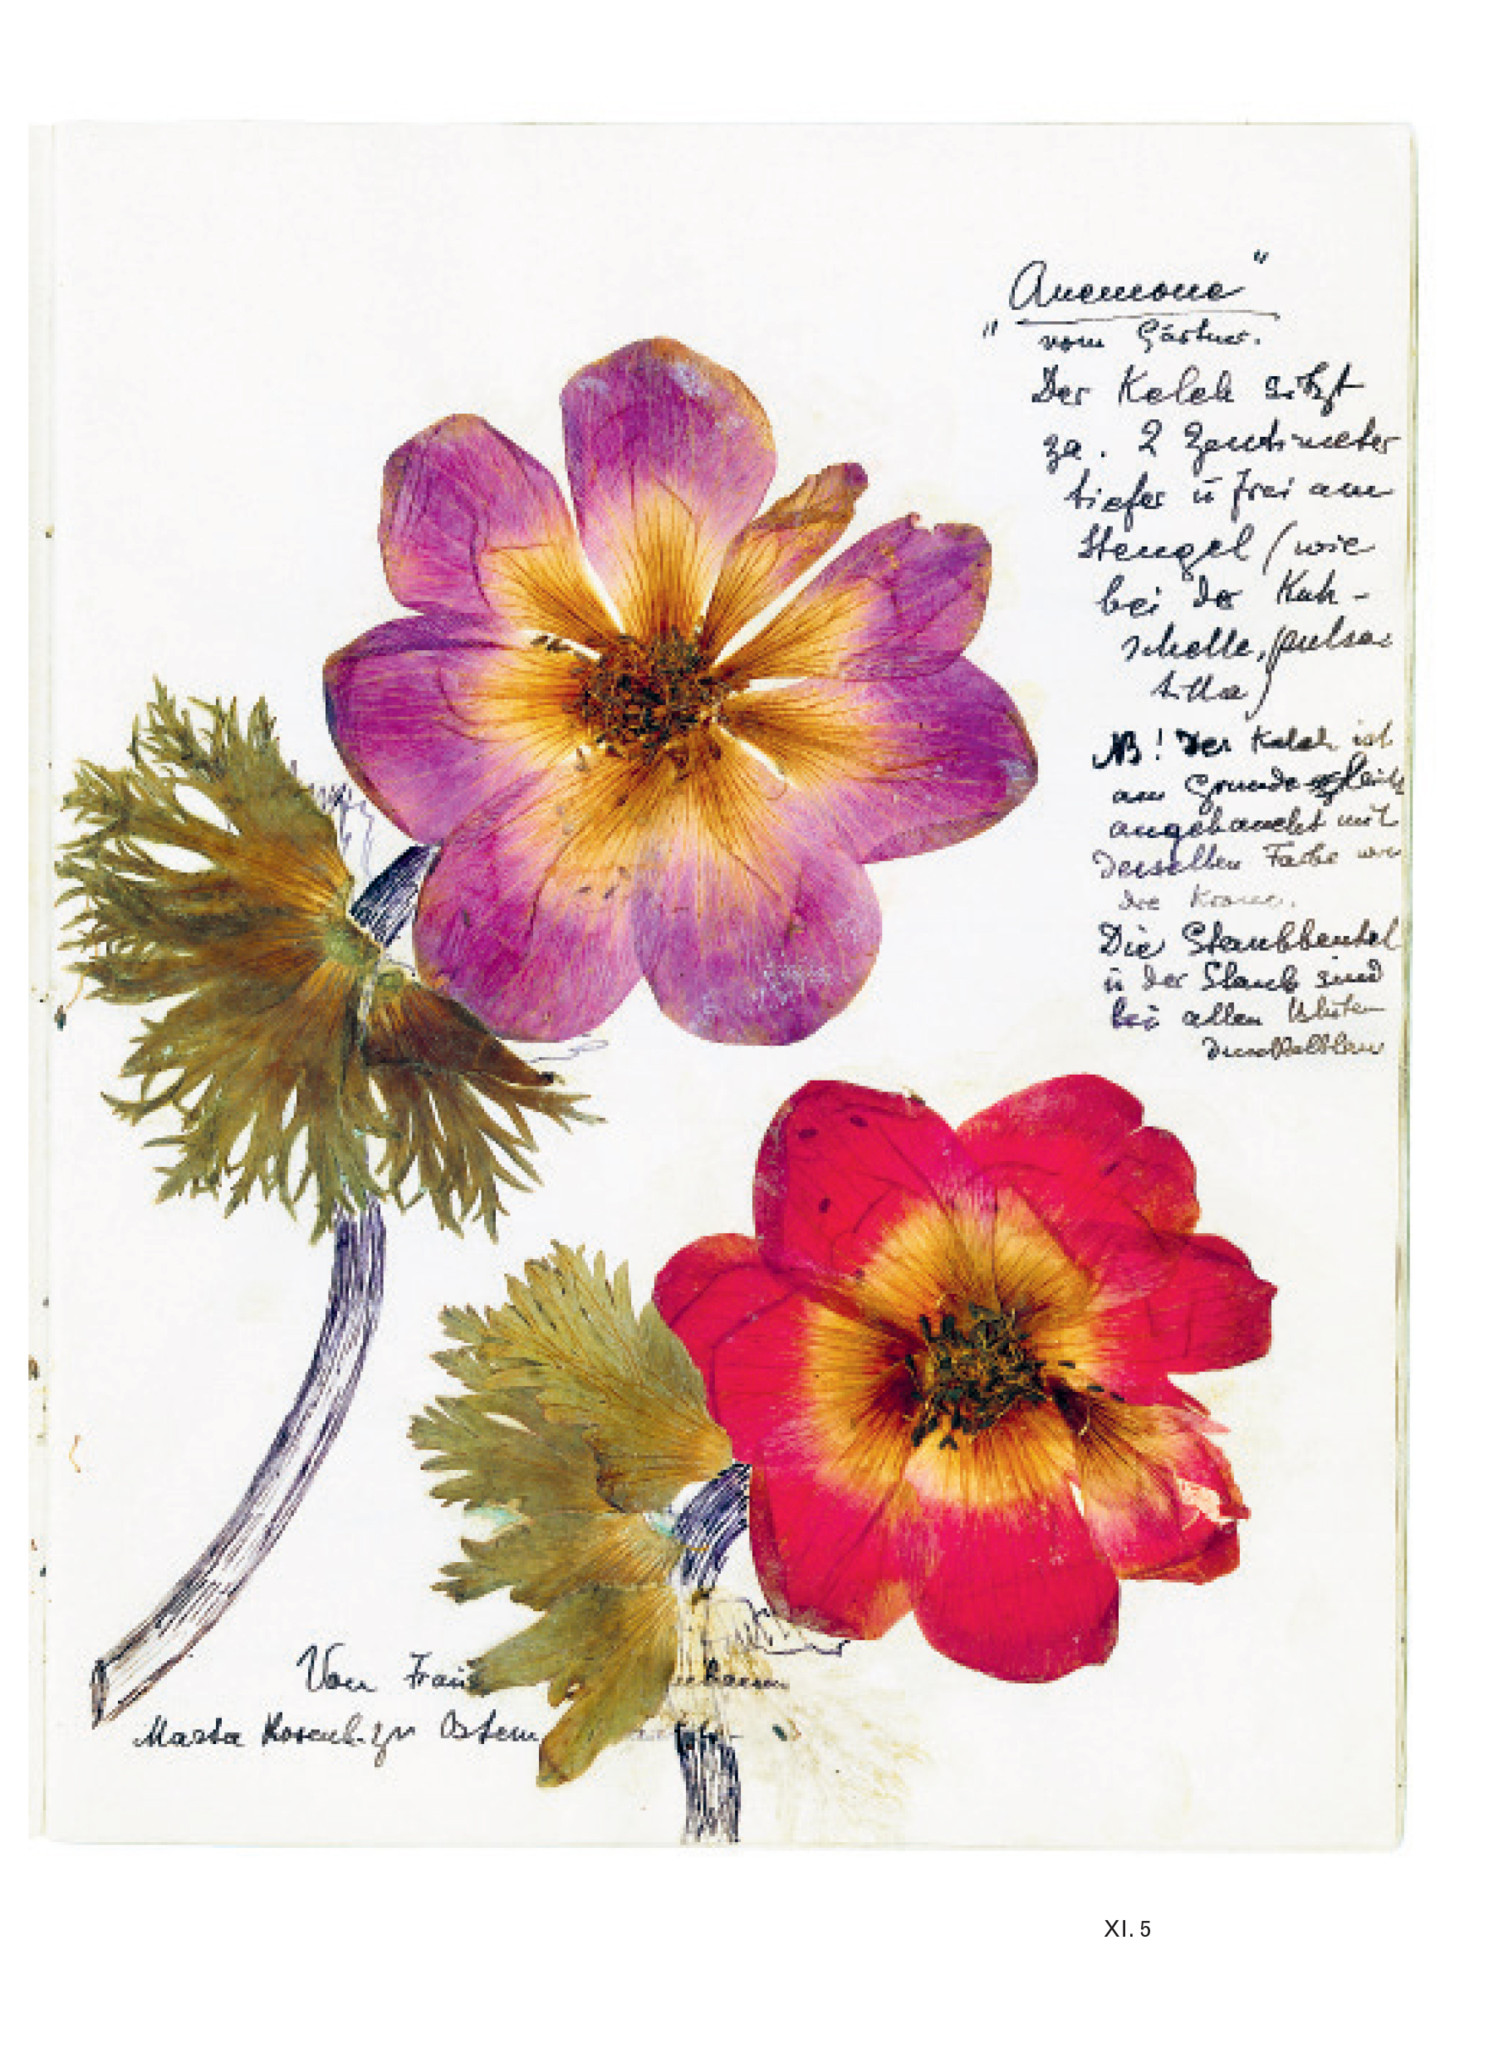 "Anemone"
vom Gärtner.
Der Kelch sitzt
za. 2 Zentimeter
tiefer ü frei am
Stengel (wie
bei der Kuh-
schelle, pulsa-
tilla)
NB! Der Kelch ist
am Grunde gleich
angehaucht mit
derselben Farbe wie
die Krone.
Die Staubbeutel
ü der Staub sind
bei allen Blüten
dunkelblau
Von
Marta Rosenb. zu Ostern
XI. 5